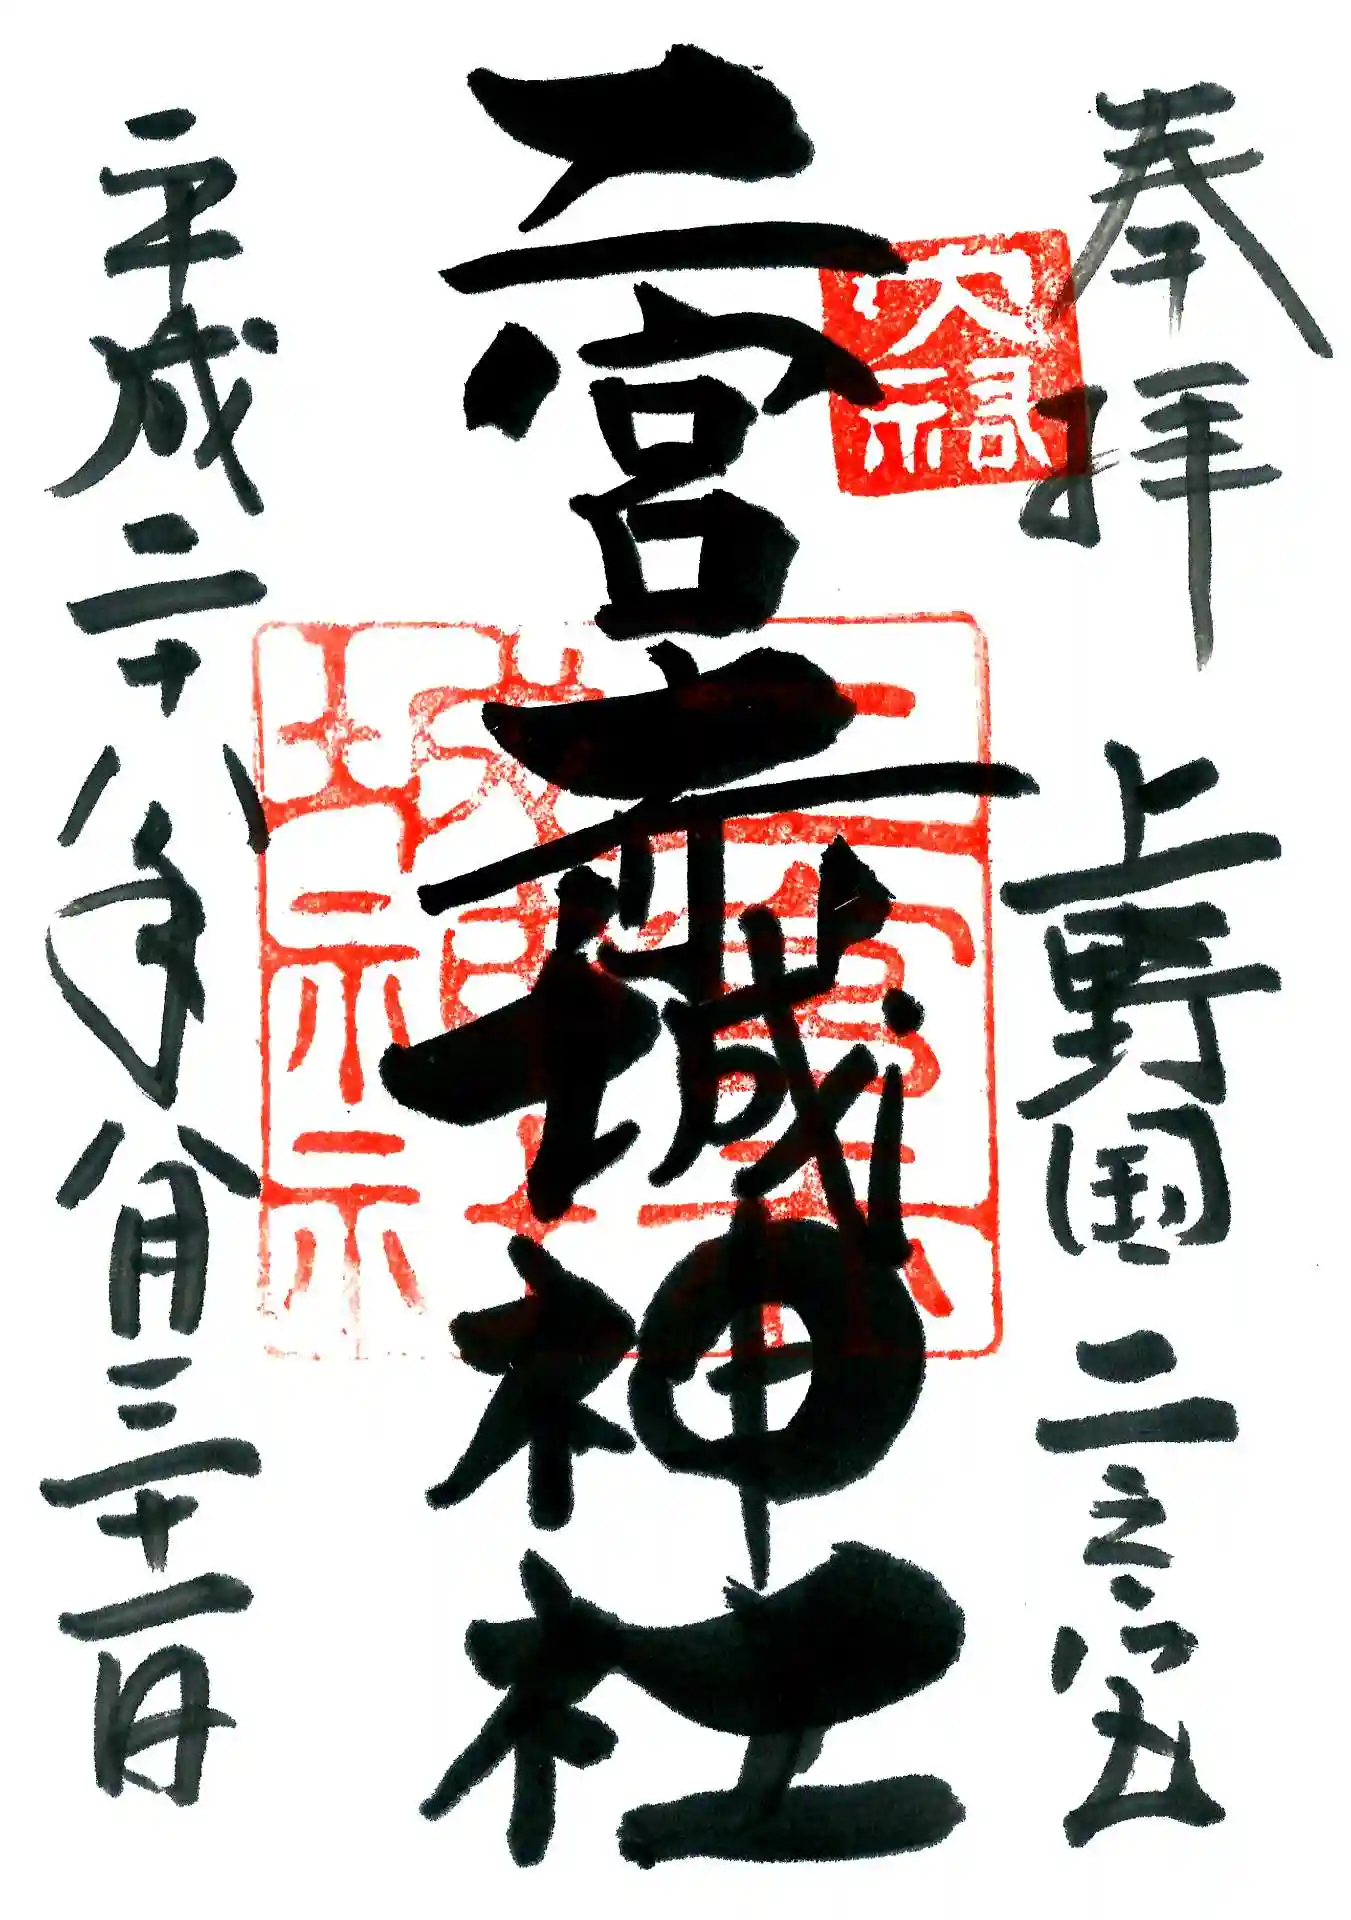 奉拝 上野国二之宮
二宮赤城神社
平成二十八年八月三十一日
二宮赤城神社